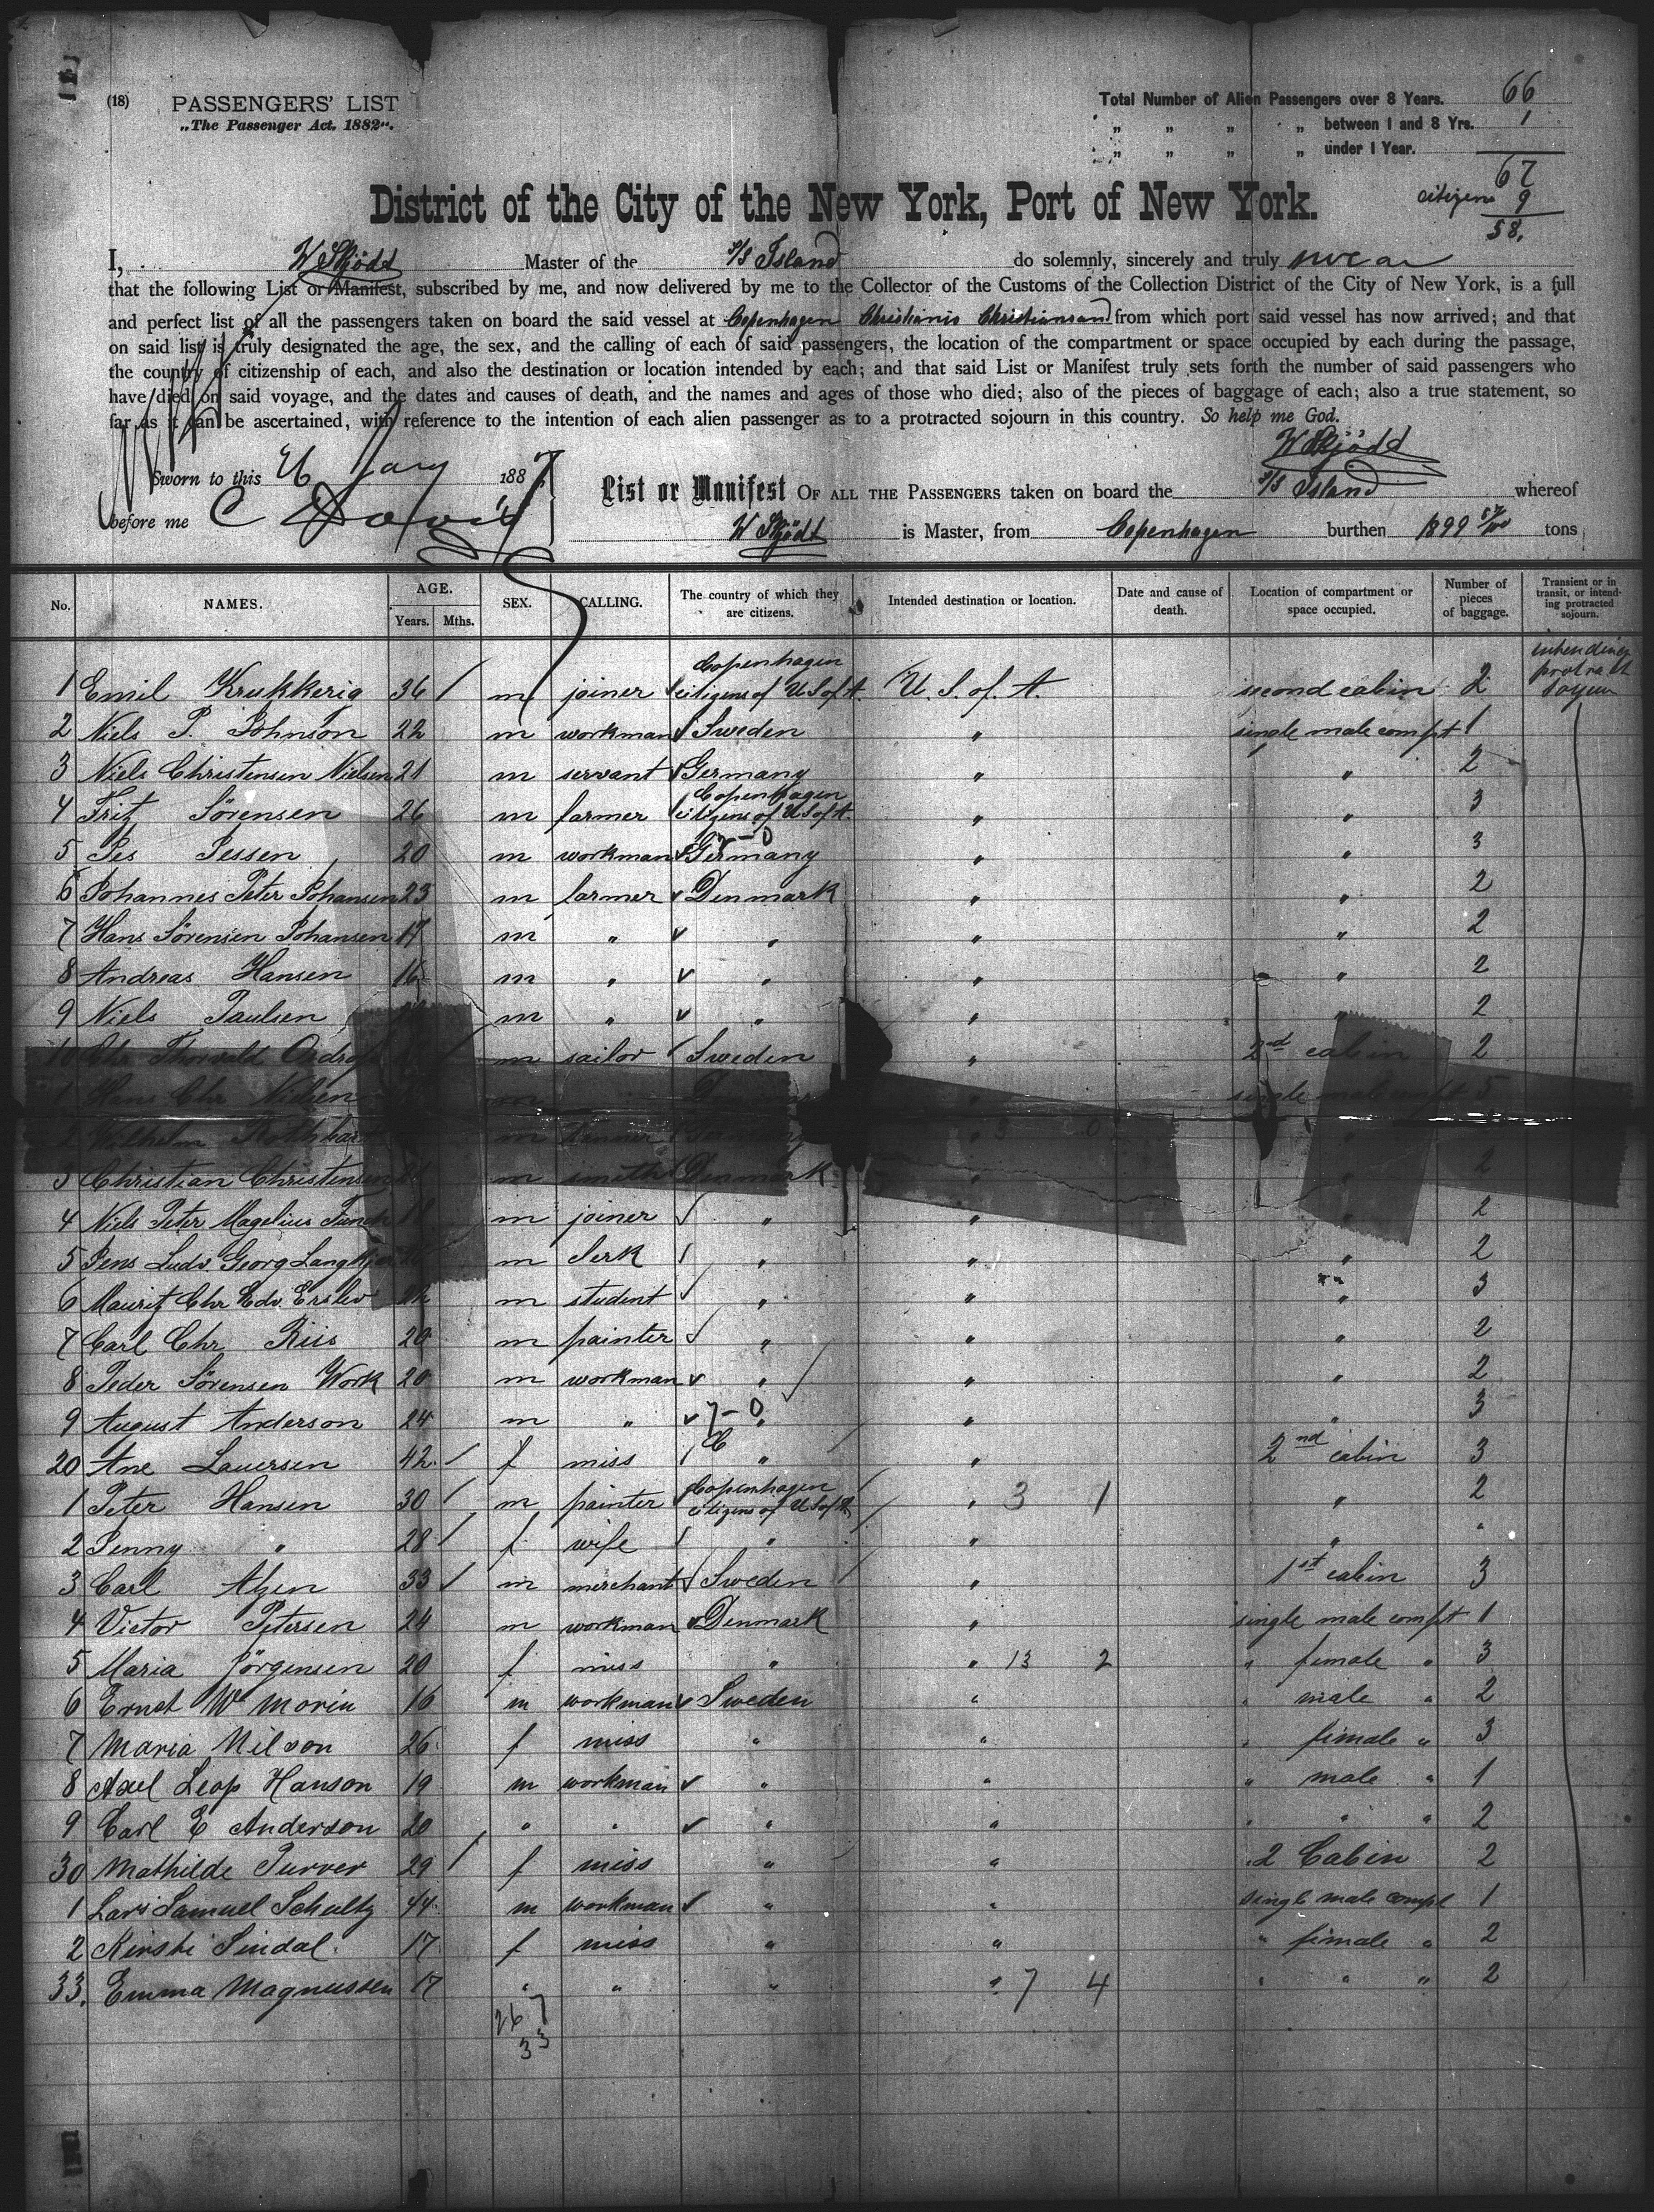 (18) PASSENGERS' LIST
„The Passenger Act. 1882“.
Total Number of Alien Passengers over 8 Years. 66
„ „ „ „ between 1 and 8 Yrs. 1
„ „ „ „ under 1 Year.
67
citizens 9
58.
District of the City of the New York, Port of New York.
I, W Skjödt Master of the S/S Island do solemnly, sincerely and truly swear
that the following List or Manifest, subscribed by me, and now delivered by me to the Collector of the Customs of the Collection District of the City of New York, is a full
and perfect list of all the passengers taken on board the said vessel at Copenhagen Christiania Christiansand from which port said vessel has now arrived; and that
on said list is truly designated the age, the sex, and the calling of each of said passengers, the location of the compartment or space occupied by each during the passage,
the country of citizenship of each, and also the destination or location intended by each; and that said List or Manifest truly sets forth the number of said passengers who
have died on said voyage, and the dates and causes of death, and the names and ages of those who died; also of the pieces of baggage of each; also a true statement, so
far as it can be ascertained, with reference to the intention of each alien passenger as to a protracted sojourn in this country. So help me God.
W Skjödt
Sworn to this 26 Jany 1887
before me C
List or Manifest OF ALL THE PASSENGERS taken on board the S/S Island whereof
W Skjödt is Master, from Copenhagen burthen 1899 57/100 tons
No. NAMES. AGE. Years. Mths. SEX. CALLING. The country of which they are citizens. Intended destination or location. Date and cause of death. Location of compartment or space occupied. Number of pieces of baggage. Transient or in transit, or intending protracted sojourn.
1 Emil Krukkerig 36 m joiner Copenhagen citizens of U S of A. U. S. of. A. second cabin 2 intending protract
2 Niels P. Johnson 22 m workman Sweden „ single male compt 1
3 Niels Christensen Nielsen 21 m servant Germany „ „ 2
4 Fritz Sörensen 26 m farmer Copenhagen citizens of U S of A. „ „ 3
5 Jes Jessen 20 m workman Germany „ „ 3
6 Johannes Peter Johansen 23 m farmer Denmark „ „ 2
7 Hans Sörensen Johansen 17 m „ „ „ „ 2
8 Andreas Hansen 16 m „ „ „ „ 2
9 Niels Paulsen m „ „ „ „ 2
10 Chr Thorvald m sailor Sweden „ 2nd cabin 2
1 Hans Chr Nielsen m „ single male compt 5
2 Wilhelm m Germany „ „
3 Christian Christensen m smith Denmark „ „ 2
4 Niels Peter Magelius Funch m joiner „ „ „ 2
5 Jens Ludv. Georg m clerk „ „ „ 2
6 Mauritz Chr Edv. Erslev m student „ „ „ 3
7 Carl Chr Riis 20 m painter „ „ „ 2
8 Peder Sörensen Work 20 m workman „ „ „ 2
9 August Anderson 24 m „ 7-0 „ „ „ 3
20 Ane Lauersen 42 f miss „ „ 2nd cabin 3
1 Peter Hansen 30 m painter Copenhagen citizens of U S of A. „ 3 1 „ 2
2 Jenny „ 28 f. wife „ „ „ „
3 Carl Atzen 33 m merchant Sweden „ 1st cabin 3
4 Victor Petersen 24 m workman Denmark „ single male compt 1
5 Maria Jörgensen 20 f miss „ „ 13 2 „ female „ 3
6 Ernst Wm Morin 16 m workman Sweden „ „ male „ 2
7 Maria Nilson 26 f miss „ „ „ female „ 3
8 Axel Leop Hanson 19 m workman „ „ „ male „ 1
9 Carl E Anderson 20 „ „ „ „ „ „ „ 2
30 Mathilde Turver 29 f miss „ „ 2 Cabin 2
1 Lars Samuel Schultz 44 m workman „ „ single male compt 1
2 Kirsti Sindal 17 f miss „ „ „ female „ 2
33. Emma Magnussen 17 „ „ „ „ 7 4 „ „ „ 2
26 7
33